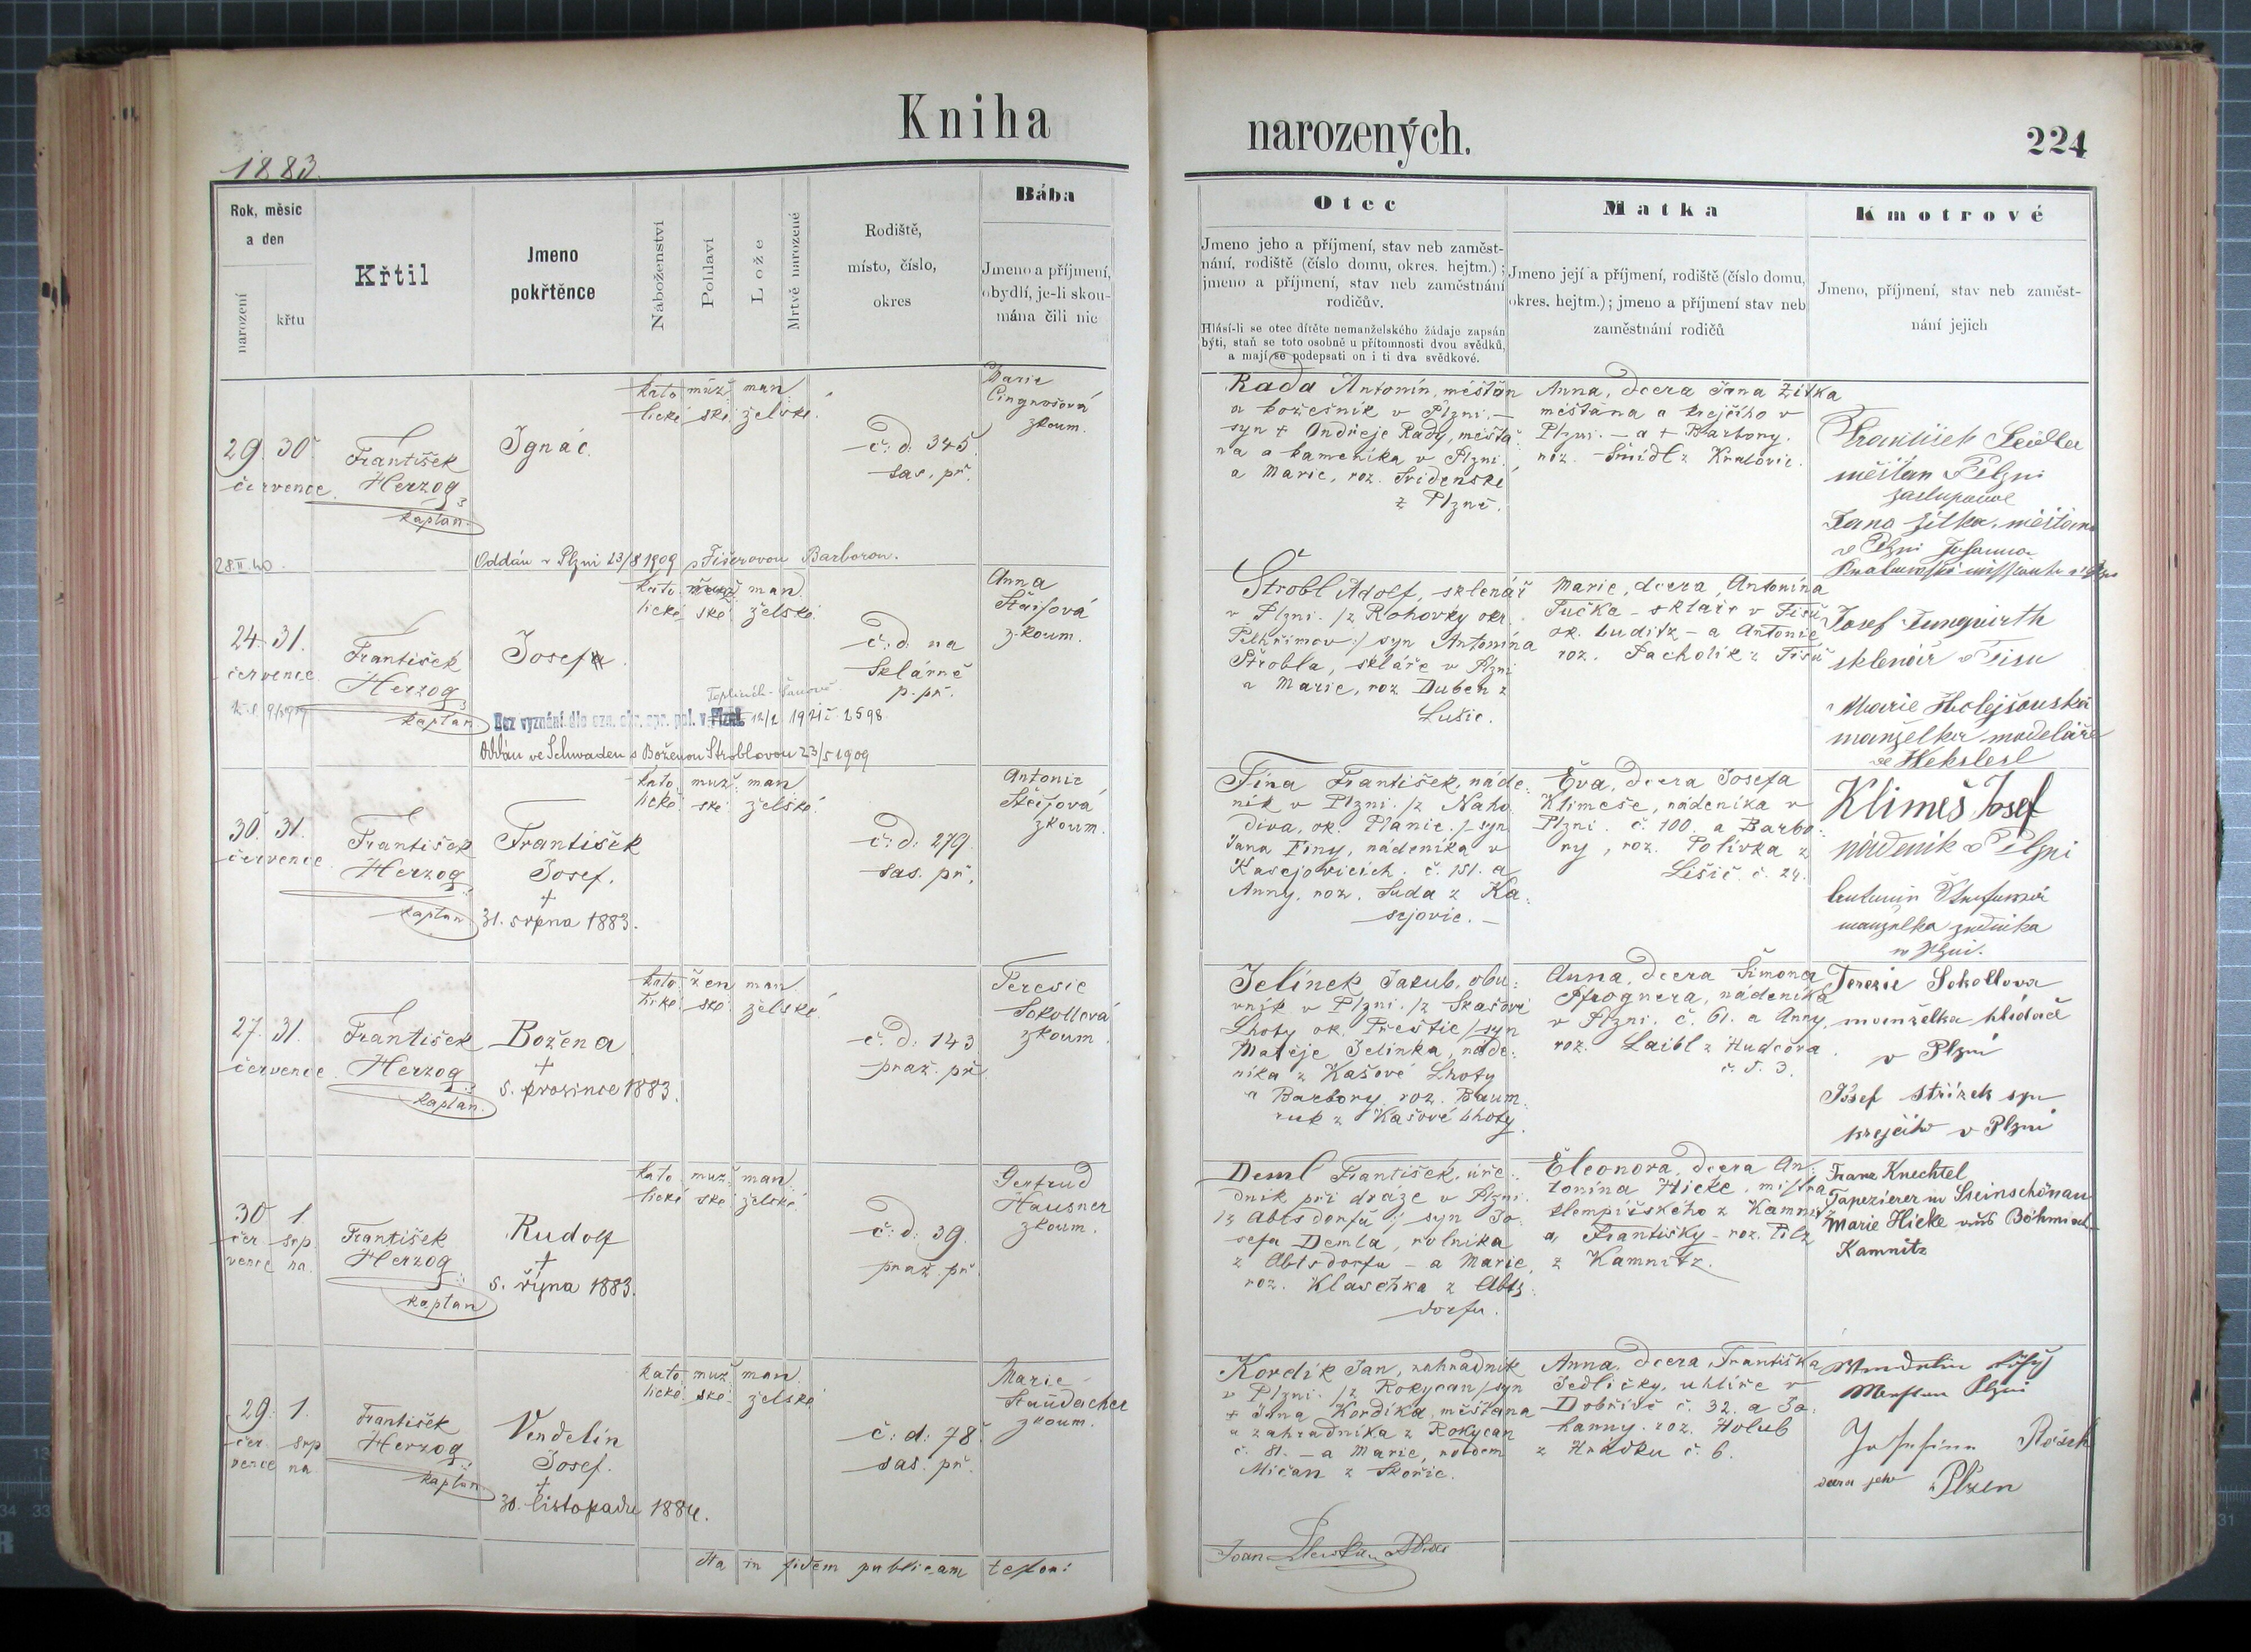 Kniha
1883.
Rok, měsíc
a den
narození
křtu
Křtil
Jmeno
pokřtěnce
Naboženství
Pohlaví
Lože
Mrtvě narozené
Rodiště,
místo, číslo,
okres
Bába
Jmeno a příjmení,
obydlí, je-li skou-
mána čili nic
29. 30.
července.
František
Herzog
kaplan.
Ignác.
kato muž man
lické ské želské.
č: d. 345.
sas. př.
Marie
zkoum.
28.II.40
Oddán v Plzni 23/8 1909 s Fišerovou Barborou.
24. 31.
července
František
Herzog
kaplan.
Josef
kato man
lické ské želské.
č: d. na
Sklárně
p. př.
Anna
zkoum.
Bez vyznání dle ozn. okr. spr. pol. v 12/2 1921 č 2598
Oddán ve Schwaden s Boženou Stroblovou 23/5 1909
30. 31.
července
František
Herzog
kaplan
František
Josef.
+
31. srpna 1883.
kato muž man
lické ské želské.
č: d: 279.
sas. př.
Antonie
zkoum.
27. 31.
července
František
Herzog
kaplan.
Božena
+
5. prosince 1883.
kato žen man
lické ské želské.
č. d: 143
praž. př
Teresie
Sokollová
zkoum.
30 1
čer srp
vence na.
František
Herzog
kaplan
Rudolf
+
5. října 1883.
kato muž man
lické ské želské
č: d: 39.
praž. př.
Gertrud
Hausner
zkoum.
29. 1.
čer srp
vence na
František
Herzog
kaplan
Vendelín
Josef.
+
30. listopadu 1884.
kato muž man.
lické ské želské
č: d: 78.
sas. př.
Marie
zkoum.
Ita in fidem publicam testor:
narozených.
224
Otec
Jmeno jeho a příjmení, stav neb zaměst-
nání, rodiště (číslo domu, okres. hejtm.);
jmeno a příjmení, stav neb zaměstnání
rodičův.
Hlásí-li se otec dítěte nemanželského žádaje zapsán
býti, staň se toto osobně u přítomnosti dvou svědků,
a mají se podepsati on i ti dva svědkové.
Matka
Jmeno její a příjmení, rodiště (číslo domu,
okres. hejtm.); jmeno a příjmení stav neb
zaměstnání rodičů
Kmotrové
Jmeno, příjmení, stav neb zaměst-
nání jejich
Rada Antonín, měštan
a kožešník v Plzni. —
syn + Ondřeje Rady, měšťa
na a kameníka v Plzni
a Marie, roz.
z Plzně.
Anna, dcera Jana Žitka
měšťana a krejčího v
Plzni. — a + Barbory.
roz. Šmídl z Kralovic.
František
měštan Plzni
Jana Žitka, měštana
v Plzni
Štrobl Adolf, sklenář
v Plzni. /z Rohovky okr.
Pelhřimov:/ syn Antonína
Štrobla, skláře v Plzni
a Marie, roz Duben z
Lušic.
Marie, dcera, Antonína
Tučka – skláře v
ok. Luditz – a Antonie
roz. Pacholík z
Josef
sklenář v
Marie Holejšouská
manželka modeláře
Fina František, náde:
ník v Plzni. /z Naho
diva, ok. Planic. /- syn
Jana Finy, nádeníka v
Kasejovicích. č. 151. a
Anny, roz. Suda z Ka:
sejovic. —
Eva, dcera Josefa
Klimeše, nádeníka v
Plzni. č. 100. a Barbo:
ry, roz. Polívka z
Lišic. č. 24.
Klimeš Josef
nádeník v Plzni
manželka
v Plzni.
Jelínek Jakub, obu:
vník v Plzni. /z
Lhoty ok. Přeštic /syn
Matěje Jelínka, náde:
níka z Kašové Lhoty
a Barbory roz. Baum:
ruk z Kašové Lhoty.
Anna, dcera Šimona
Pfrognera, nádeníka
v Plzni. č. 61. a Anny,
roz. Laibl z Hudčova.
č. d. 3.
Terezie Sokollova
manželka hlídače
v Plzni
Josef Střízek syn
krejčího v Plzni
Deml František, úře:
dník při dráze v Plzni.
/z Abtsdorfu :/ syn Jo
sefa Demla, rolníka
z Abtsdorfu – a Marie,
roz. Klaschka z Abts:
dorfu.
Eleonora, dcera An:
tonína Hicke, mistra
klempířského z Kamnitz
a, Františky – roz. Pilz
z Kamnitz.
Franz Knechtel
Tapezierer in Steinschönau
Marie Hicke aus Böhmisch
Kamnitz
Kordík Jan, zahradník
v Plzni. /z Rokycan /syn
+ Jana Kordíka, měšťana
a zahradníka z Rokycan
č. 81. – a Marie, rodem
Mičan z Skořic.
Anna, dcera, Františka
Jedličky, uhlíře v
Dobřívě č. 32. a Jo:
hanny. roz. Holub
z Hrádku č. 6.
Plzni
Josefina
dcera jeho Plzen